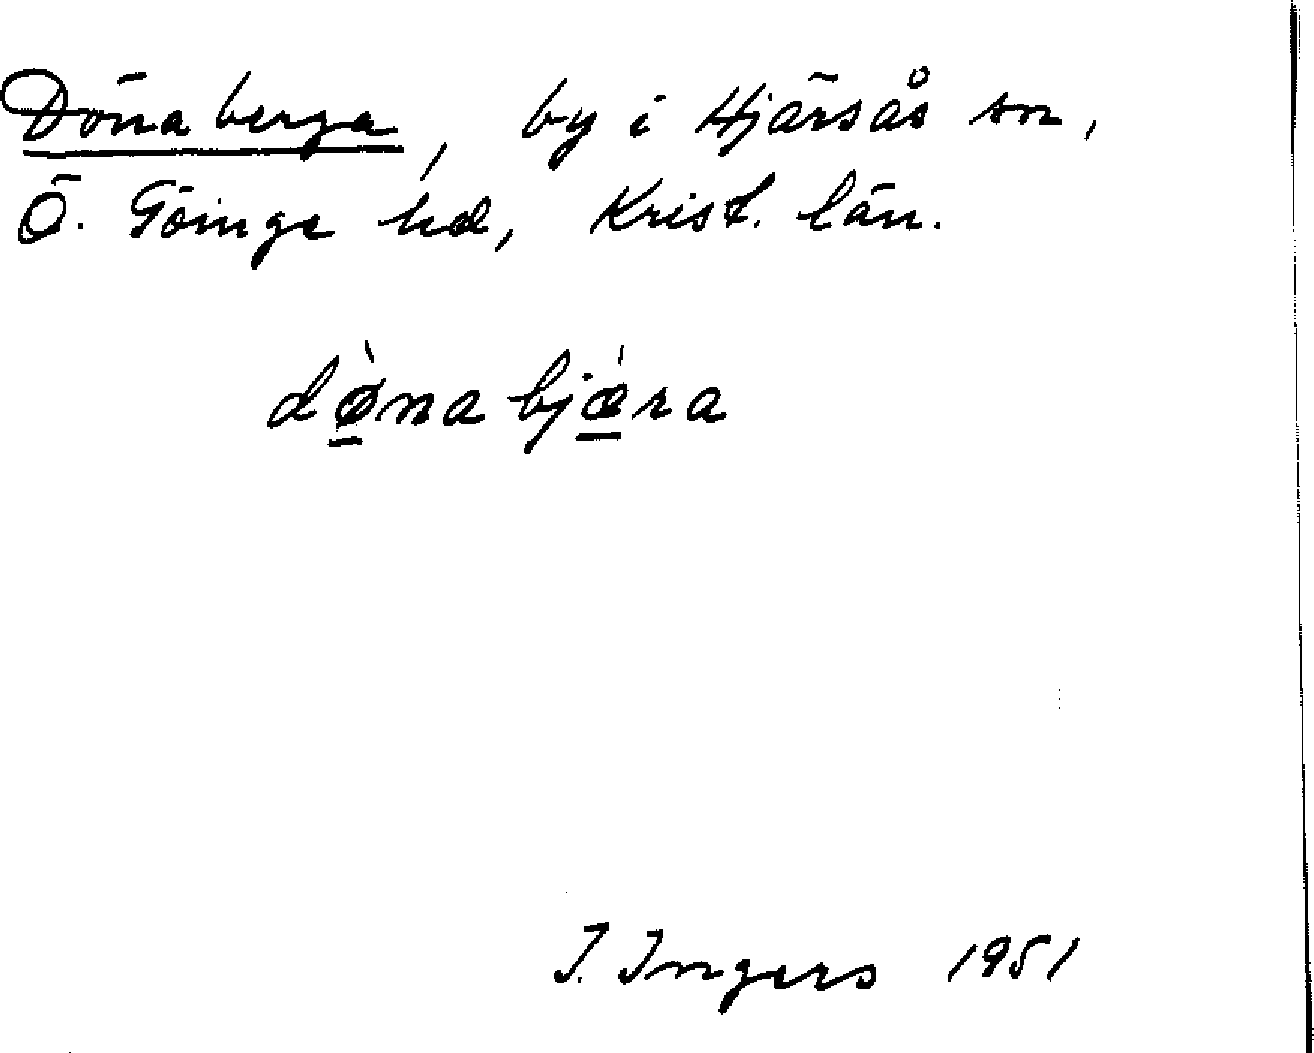 Dönaberga, by i Hjärsås sn,
Ö. Göinge hd, Krist. län.
dø̱̀nabjæ̱̀ra
I. Ingers 1951